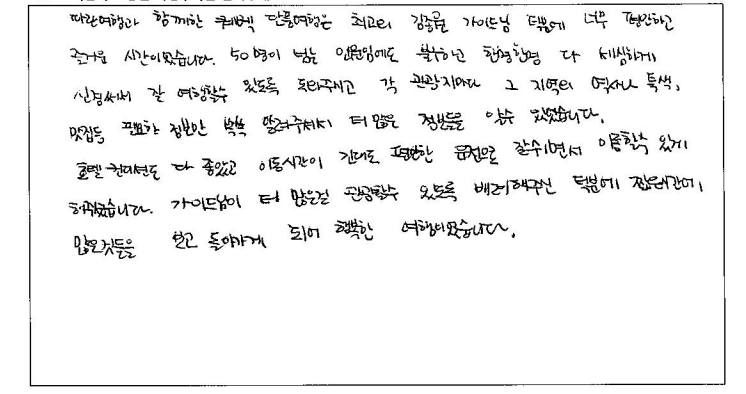 따란여행과 함께한 퀘벡 단풍여행은 최고의 가이드님 덕분에 너무 편안하고
즐거운 시간이었습니다. 50명이 넘는 인원임에도 불구하고 한명한명 다 세심하게
신경써서 잘 여행할수 있도록 도와주시고 각 관광지마다 그 지역의 역사나 특색,
맛집등 필요한 정보만 쏙쏙 알려주셔서 더 많은 정보들을 알수 있었습니다.
호텔 컨디션도 다 좋았고 이동시간이 긴데도 편안한 운전으로 잘수있면서 이동할수 있게
해주셨습니다. 가이드님이 더 많은걸 관광할수 있도록 배려해주신 덕분에 짧은시간에,
많은것들을 보고 돌아가게 되어 행복한 여행이었습니다.